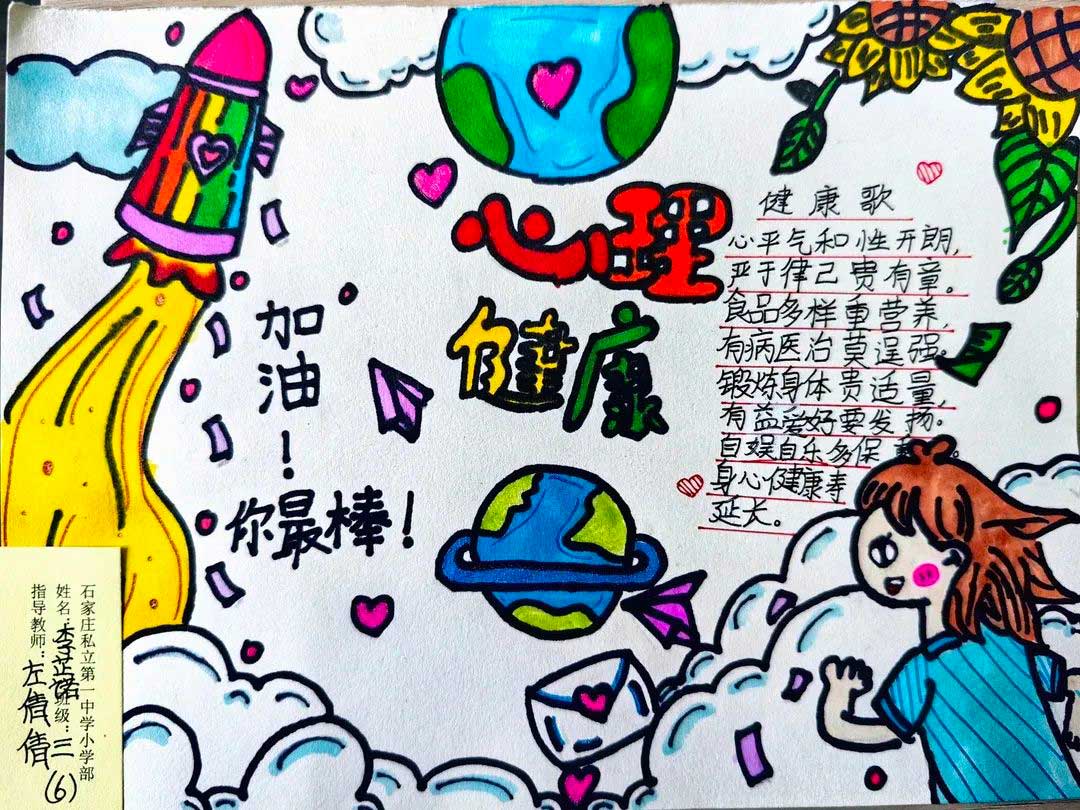 心理
健康
加油！
你最棒！
健康歌
心平气和性开朗，
严于律己贵有章。
食品多样重营养，
有病医治莫逞强。
锻炼身体贵适量，
有益爱好要发扬。
自娱自乐多保重。
身心健康寿
延长。
石家庄私立第一中学小学部
姓名：李芷诺 班级：三(6)
指导教师：左倩倩